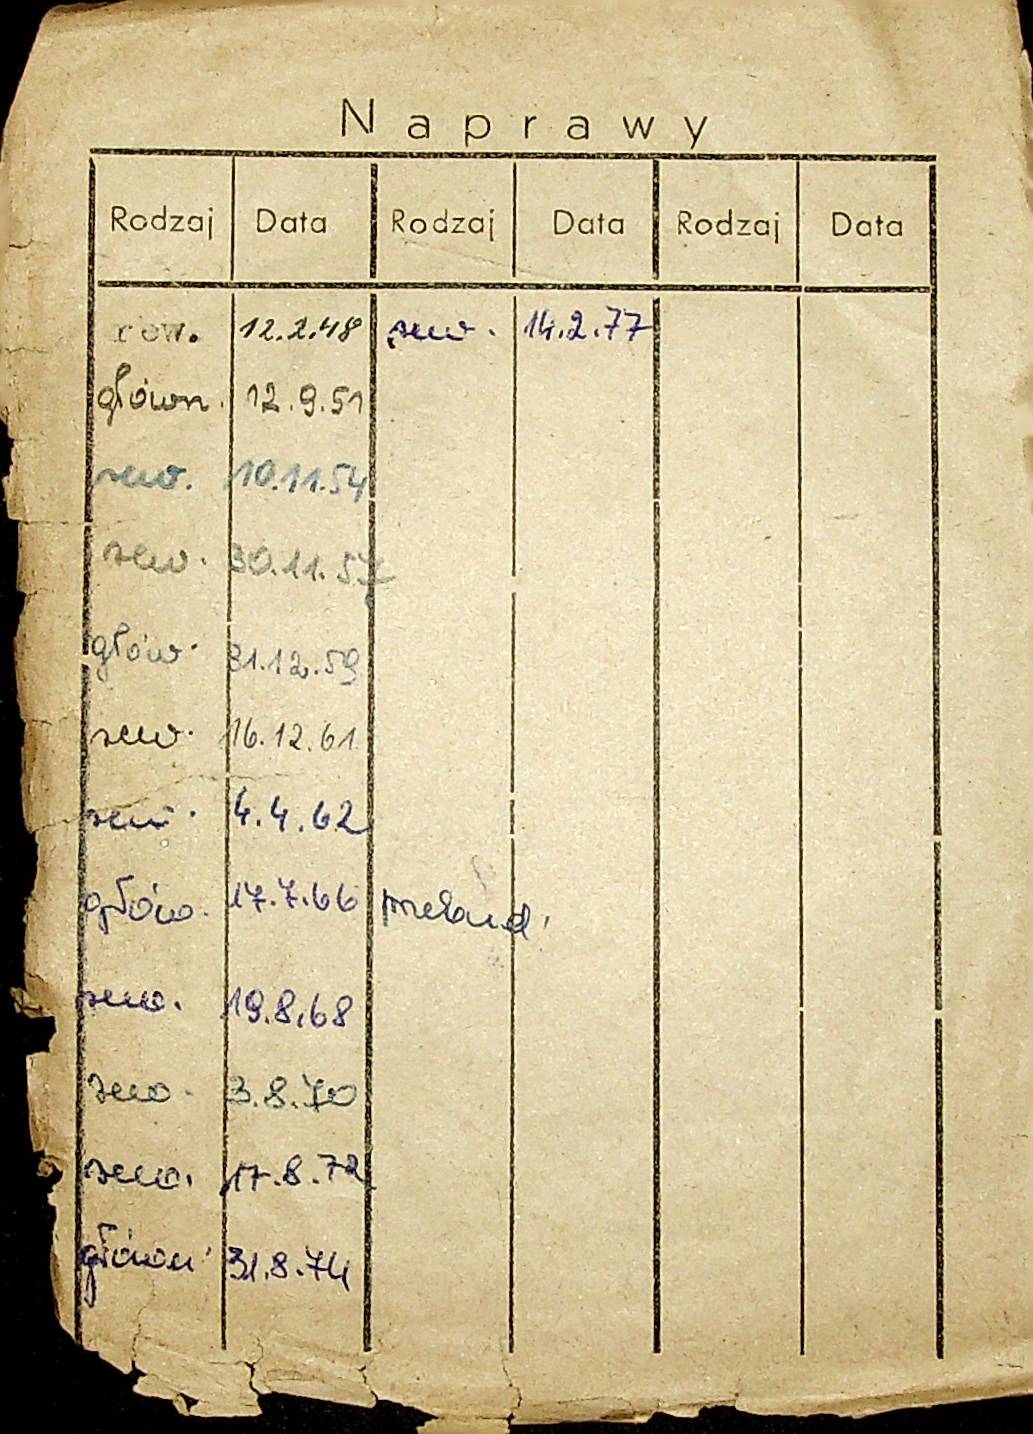 Naprawy
Rodzaj Data Rodzaj Data Rodzaj Data
rew. 12.2.48 rew. 14.2.77
główn. 12.9.51
rew. 10.11.54
rew. 30.11.57
głów. 31.12.59
rew. 16.12.61
rew. 4.4.62
głów. 17.7.66
rew. 19.8.68
rew. 3.8.70
rew. 17.8.72
główn. 31.8.74